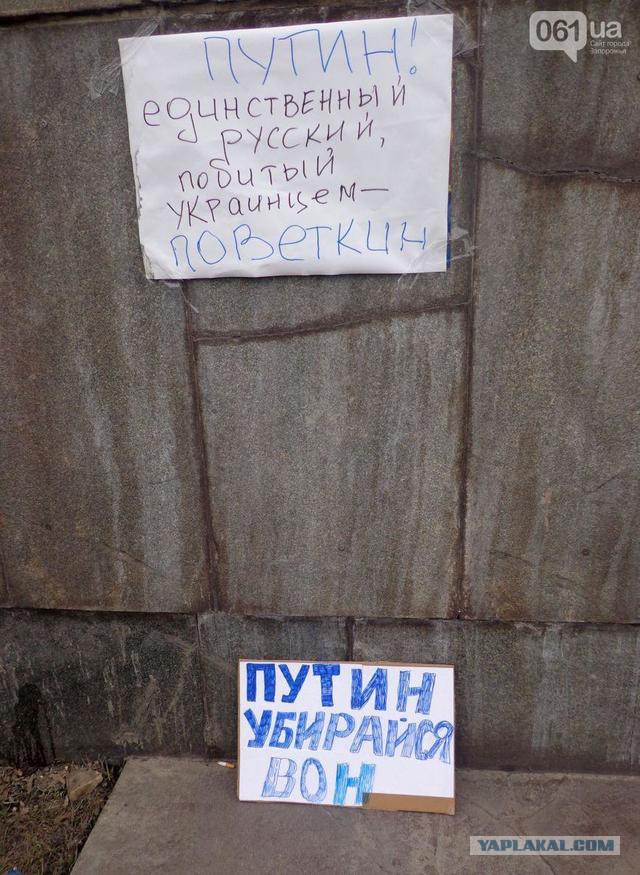 061ua
Сайт города
Запорожья
ПУТИН!
единственный
русский,
побитый
украинцем—
ПОВЕТКИН
ПУТИН
УБИРАЙСЯ
ВОН
YAPLAKAL.COM